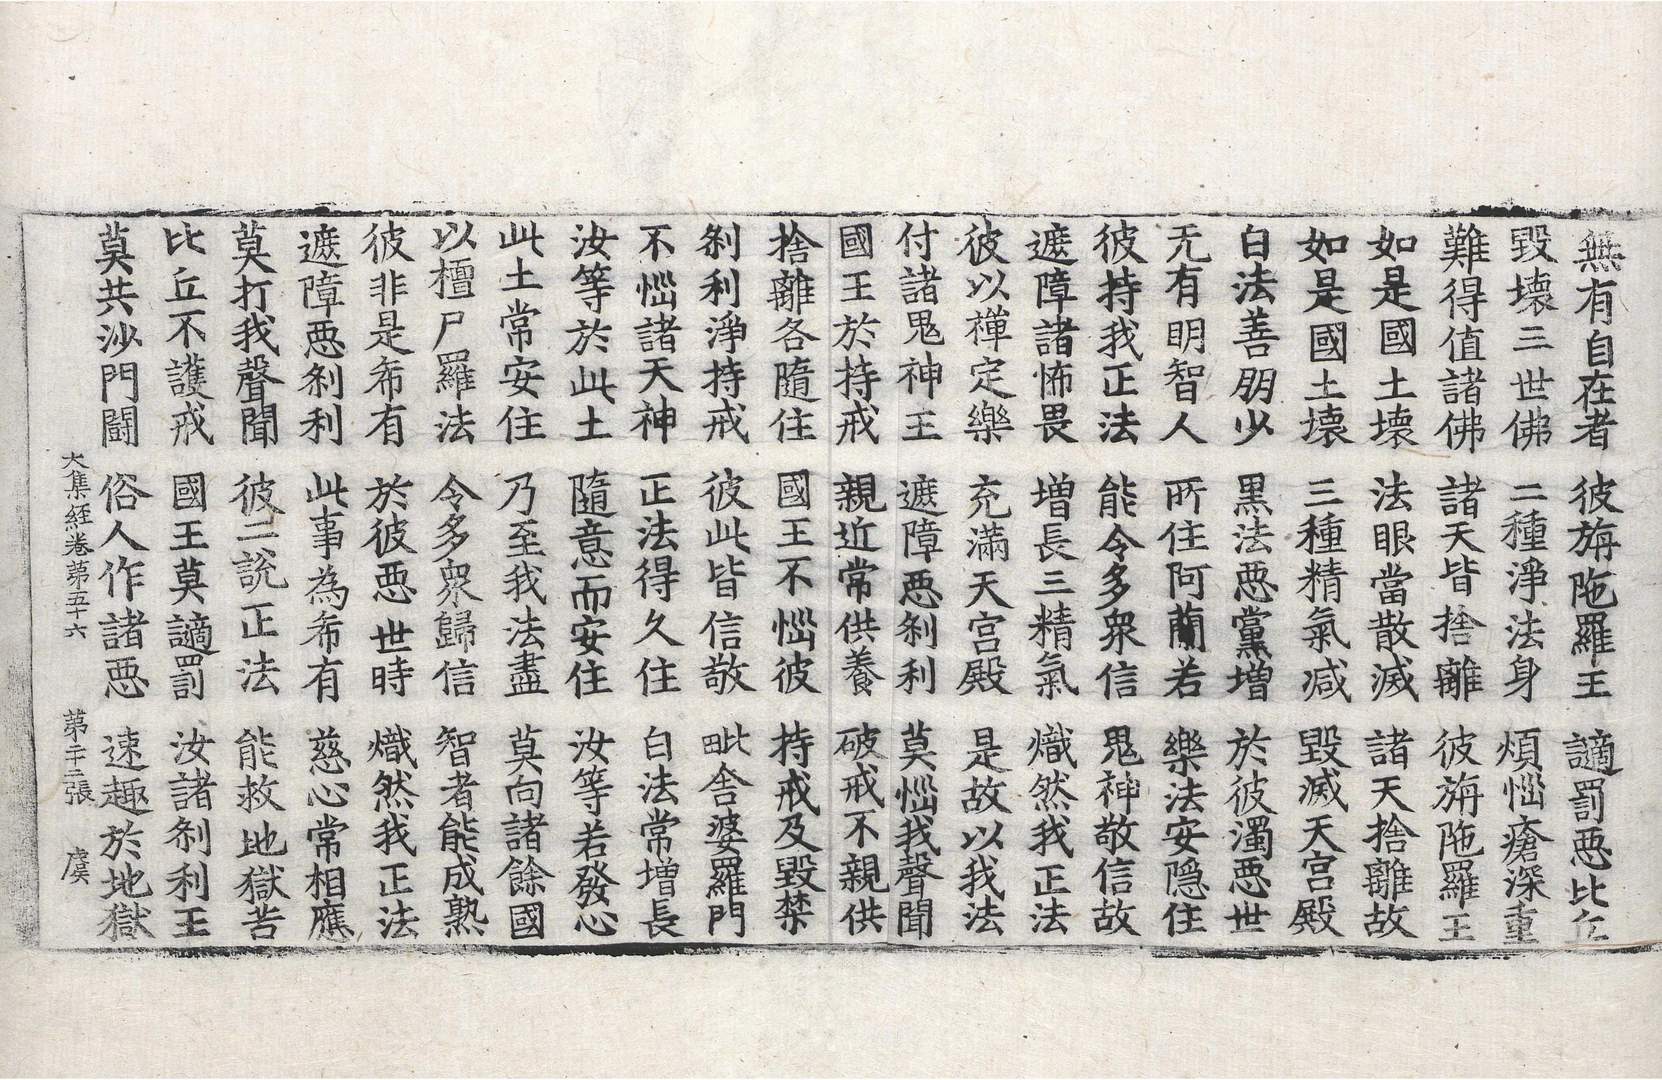 無有自在者 彼旃陁羅王 讁罰悪比丘
毀壞三世佛 二種淨法身 煩惱瘡深重
難得值諸佛 諸天皆捨離 彼旃陁羅王
如是國土壞 法眼當散滅 諸天捨離故
如是國土壞 三種精氣减 毀滅天宮殿
白法善朋少 黒法悪黨增 於彼濁悪世
无有明智人 所住阿蘭若 樂法安隠住
彼持我正法 能令多衆信 鬼神敬信故
遮障諸怖畏 增長三精氣 熾然我正法
彼以禪定樂 充滿天宮殿 是故以我法
付諸鬼神王 遮障悪刹利 莫惱我聲聞
國王於持戒 親近常供養 破戒不親供
捨離各隨住 國王不惱彼 持戒及毀禁
刹利淨持戒 彼此皆信敬 毗舍婆羅門
不惱諸天神 正法得久住 白法常增長
汝等於此土 隨意而安住 汝等若發心
此土常安住 乃至我法盡 莫向諸餘國
以檀尸羅法 令多衆歸信 智者能成熟
彼非是希有 於彼悪世時 熾然我正法
遮障悪刹利 此事為希有 慈心常相應
莫打我聲聞 彼二說正法 能救地獄苦
比丘不護戒 國王莫讁罰 汝諸刹利王
莫共沙門鬪 俗人作諸悪 速趣於地獄
大集経卷第五十六 第二十二張 虞